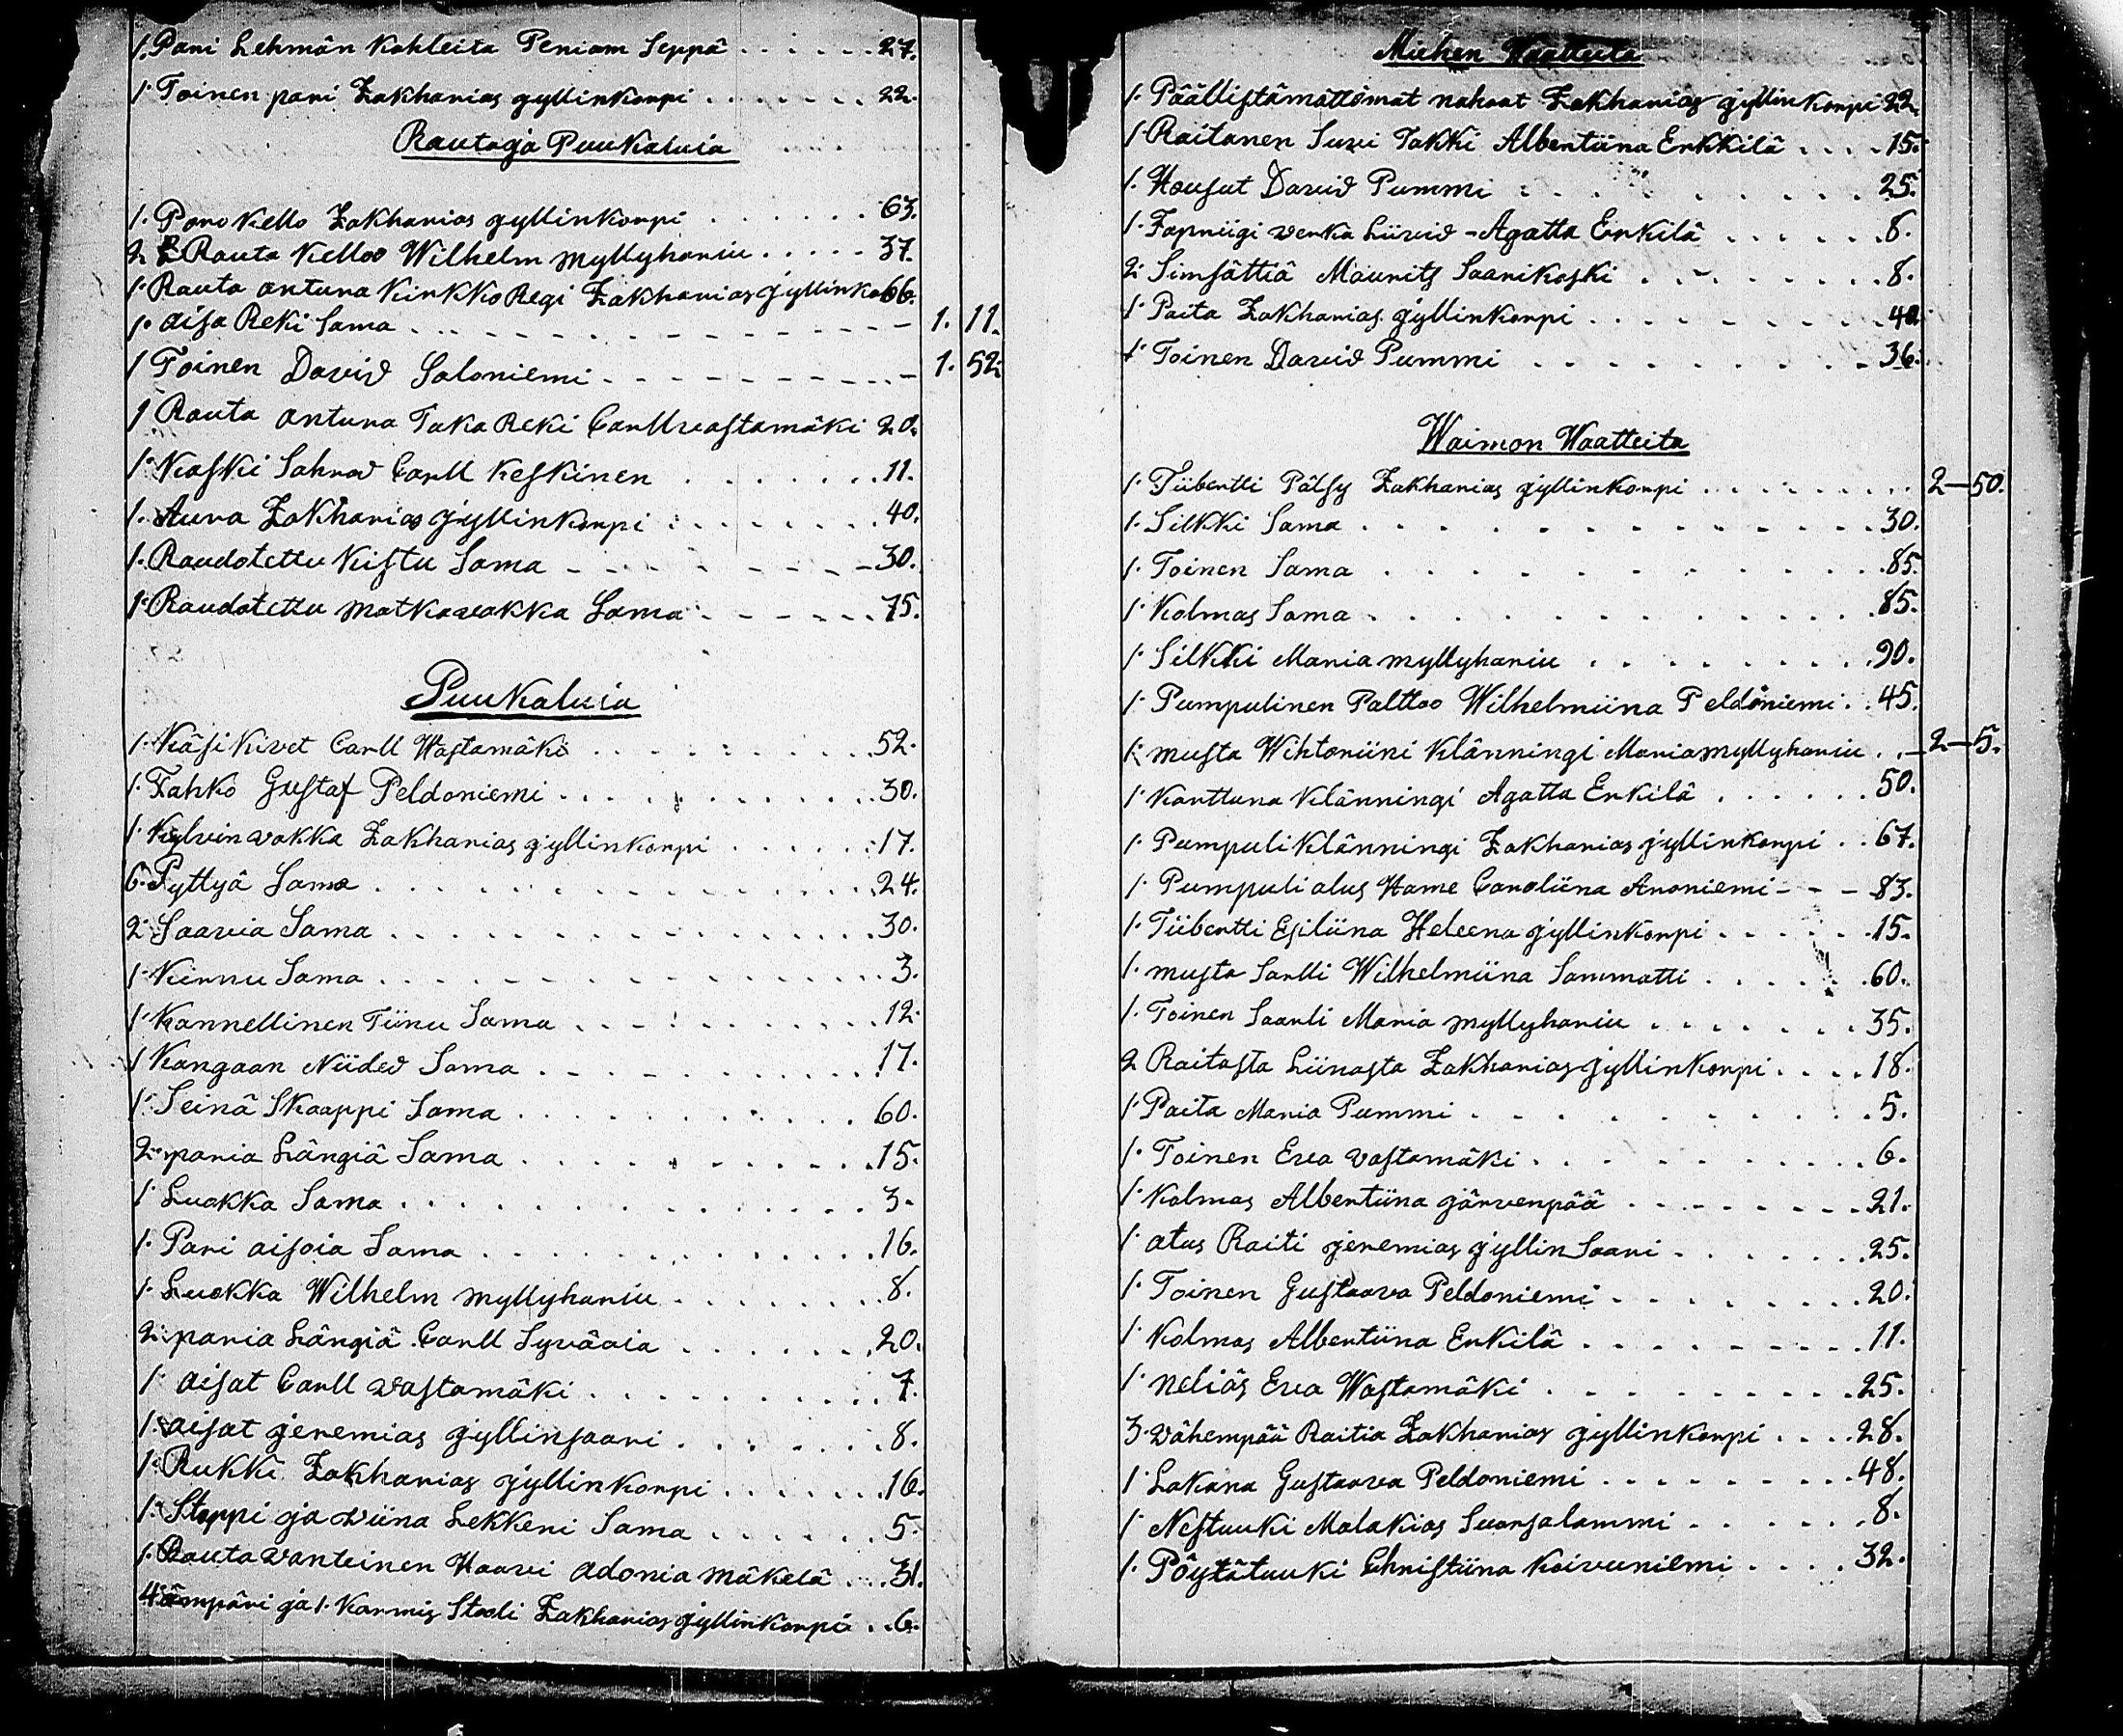 1. Pari Lehmän Kahleita Periam Seppä . . . . . . 27.
1 Toinen pari Zakharias gyllinkorpi . . . . . . . 22.
Rauta ja Puukaluia
1. Poro Kello Zakharias gyllinkorpi . . . . . . . 63.
2 Rauta Kelloo Wilhelm myllyhariu . . . . . 37.
1. Rauta antura Kirkko Regi Zakharias gyllinko 66.
1. aisa Reki Sama . . . . . . . . . . . . – 1. 11.
1 Toinen David Saloniemi . . . . . . . . . . – 1. 52.
1 Rauta antura Taka Reki Carll vastamäki 20.
1. Kaski Sahrad Carll Keskinen . . . . . . . 11.
1. Aura Zakharias gyllinkorpi . . . . . . . . 40.
1. Raudotettu Kistu Sama . . . . . . . . . 30.
1. Raudotettu matkavakka Sama . . . . . . 75.
Puukaluia
1. Käsikivet Carll Wastamäki . . . . . . . . . 52.
1. Tahko Gustaf Peldoniemi . . . . . . . . . . 30.
1. Kylvin vakka Zakharias gyllinkorpi . . . . . . 17.
6. Pyttyä Sama . . . . . . . . . . . . . . . 24.
2. Saavia Sama . . . . . . . . . . . . . . . 30.
1. Kirnu Sama . . . . . . . . . . . . . . . 3.
1. Kannellinen Tiinu Sama . . . . . . . . . . 12.
1 Kangaan Niided Sama . . . . . . . . . . . 17.
1. Seinä Skaappi Sama . . . . . . . . . . . . 60.
2. paria Längiä Sama . . . . . . . . . . . . 15.
1 Luokka Sama . . . . . . . . . . . . . . . 3.
1. Pari aisoia Sama . . . . . . . . . . . . . 16.
1. Luokka Wilhelm myllyhariu . . . . . . . . 8.
2. paria Längiä Carll Syväoia . . . . . . . 20.
1. aisat Carll vastamäki . . . . . . . . . . . 7.
1. aisat jeremias gyllinsaari . . . . . . . . 8.
1. Rukki Zakharias gyllinkorpi . . . . . . . 16.
1. Stoppi ja viina Lekkeri Sama . . . . . . 5.
1. Rauta vanteinen Haavi adonia mäkelä . . . 31.
4. ämpäri ja 1. Karmis Stooli Zakharias gyllinkorpi . . 6.
Miehen Waatteita
1. Päällistämättömät nahaat Zakharias gyllinkorpi 22.
1 Raitanen Suvi Takki Albertiina Erkkilä . . . . 15.
1. Housut David Pummi . . . . . . . . . . . 25.
1. verka Liivid - Agatta Erkilä . . . . . . 8.
2. Simsättiä Maurits Saarikoski . . . . . . . . 8.
1. Paita Zakharias gyllinkorpi . . . . . . . . 40.
1. Toinen David Pummi . . . . . . . . . . 36.
Waimon Waatteita
1. Tiibertti Pälsy Zakharias gyllinkorpi . . . . . . . . 2–50.
1. Silkki Sama . . . . . . . . . . . . . . . 30.
1. Toinen Sama . . . . . . . . . . . . . . . 85.
1. Kolmas Sama . . . . . . . . . . . . . . . 85.
1. Silkki Maria myllyhariu . . . . . . . . . 90.
1. Pumpulinen Palttoo Wilhelmiina Peldoniemi . . 45.
1. musta Wihtoriini Klänningi Maria myllyhariu . . – 2–5.
1. Karttuna Klänningi Agatta Erkilä . . . . . . 50.
1. Pumpuli Klänningi Zakharias gyllinkorpi . . 67.
1. Pumpuli alus Hame Caroliina Aroniemi – – – 83.
1. Tiibertti Esiliina Heleena gyllinkorpi . . . . . . 15.
1. musta Sarlli Wilhelmiina Sammatti . . . . . . 60.
1. Toinen Saarli Maria myllyhariu . . . . . . . 35.
2 Raitasta Liinasta Zakharias gyllinkorpi . . . . 18.
1. Paita Maria Pummi . . . . . . . . . . . 5.
1. Toinen Eva vastamäki . . . . . . . . . . 6.
1. Kolmas Albertiina järvenpää . . . . . . . . 21.
1. alus Raiti jeremias gyllin Saari . . . . . . . 25.
1. Toinen Gustaava Peldoniemi . . . . . . . . 20.
1. Kolmas Albertiina Erkilä . . . . . . . . . 11.
1. neliäs Eva Wastamäki . . . . . . . . . . 25.
3. vähempää Raitia Zakharias gyllinkorpi . . . . 28.
1. Lakana Gustaava Peldoniemi . . . . . . . . 48.
1. Nestuuki Malakias Suorsalammi . . . . . . . 8.
1. Pöytätuuki Christiina Koivuniemi . . . . 32.